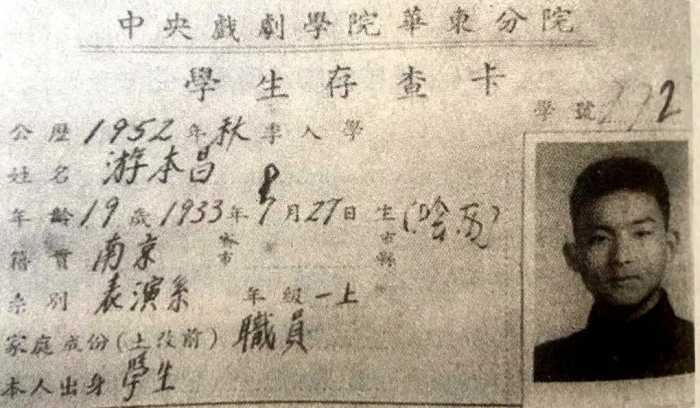 中央戏劇學院華東分院
學生存查卡
學號 2
公歷1952年秋季入學
姓名 游本昌
年齡19歲1933年8月27日生(陰历)
籍貫 南京 省市 市縣
系别 表演系 年級一上
家庭成份(土改前)職員
本人出身 學生